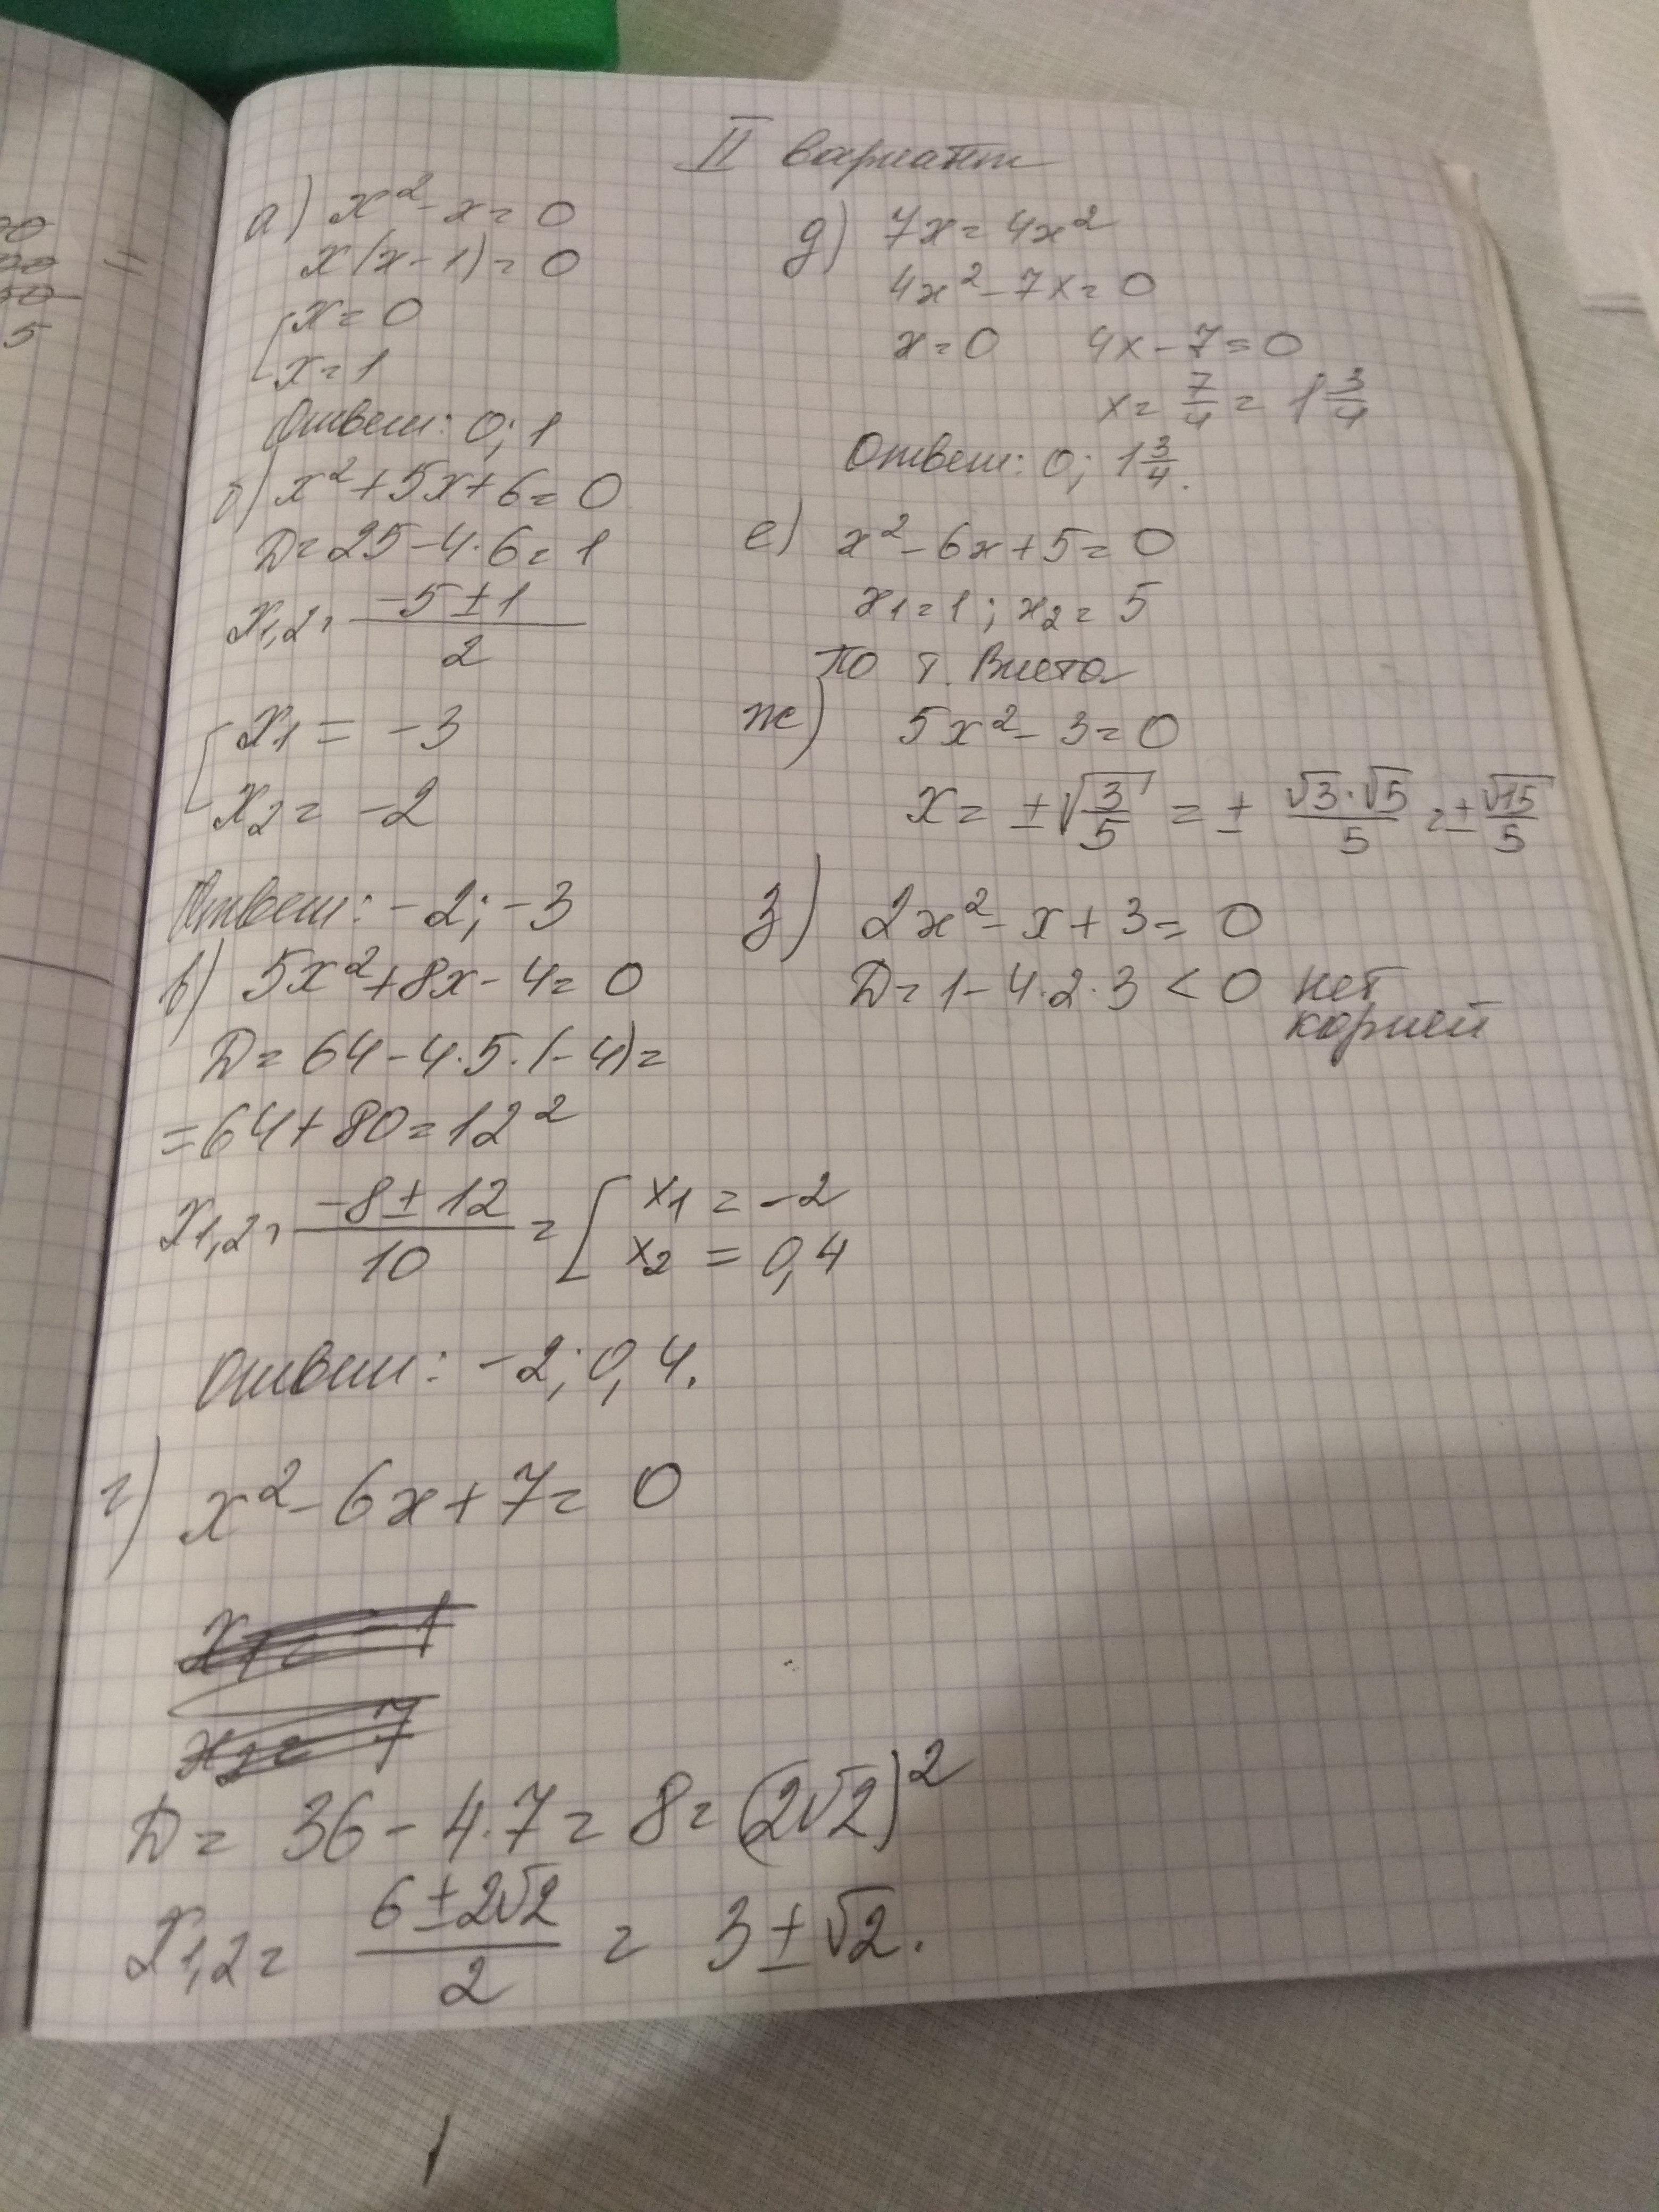 II вариант
а) x² - x = 0
x(x - 1) = 0
[x = 0
x = 1
Ответ: 0; 1
б) x² + 5x + 6 = 0
D = 25 - 4·6 = 1
x1,2 = (-5 ± 1)/2
[x1 = -3
x2 = -2
Ответ: -2; -3
в) 5x² + 8x - 4 = 0
D = 64 - 4·5·(-4) =
= 64 + 80 = 12²
x1,2 = (-8 ± 12)/10 = [x1 = -2
x2 = 0,4
Ответ: -2; 0,4.
г) x² - 6x + 7 = 0
x1 = -1
x2 = 7
D = 36 - 4·7 = 8 = (2√2)²
x1,2 = (6 ± 2√2)/2 = 3 ± √2.
д) 7x = 4x²
4x² - 7x = 0
x = 0 4x - 7 = 0
x = 7/4 = 1 3/4
Ответ: 0; 1 3/4.
е) x² - 6x + 5 = 0
x1 = 1; x2 = 5
по т. Виета
ж) 5x² - 3 = 0
x = ±√(3/5) = ± (√3·√5)/5 = ± √15/5
з) 2x² - x + 3 = 0
D = 1 - 4·2·3 < 0 нет
корней
5
=